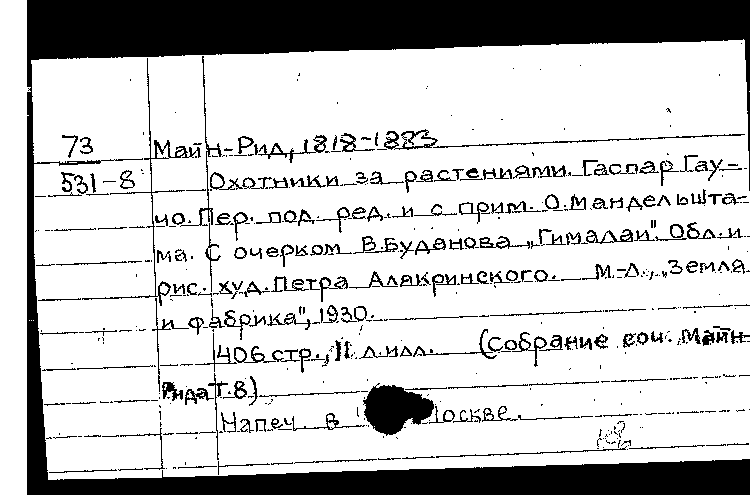 73
531-8
Майн-Рид, 1818-1883
Охотники за растениями. Гаспар Гау-
чо. Пер. под. ред. и с прим. О.Мандельшта-
ма. С очерком В.Буданова „Гималаи". Обл. и
рис. худ. Петра Алякринского. М.-Л., „Земля
и фабрика", 1930.
406 стр., 11 л.илл. (Собрание соч. Майн-
Рида Т.8)
Напеч. в Москве.